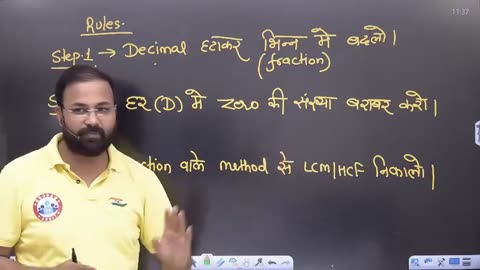 11:37
Rules.
Step.1 → Decimal हटाकर भिन्न मे बदलो।
(fraction)
हर (D) मे zero की संख्या बराबर करो।
वाले method से LCM/HCF निकालो।